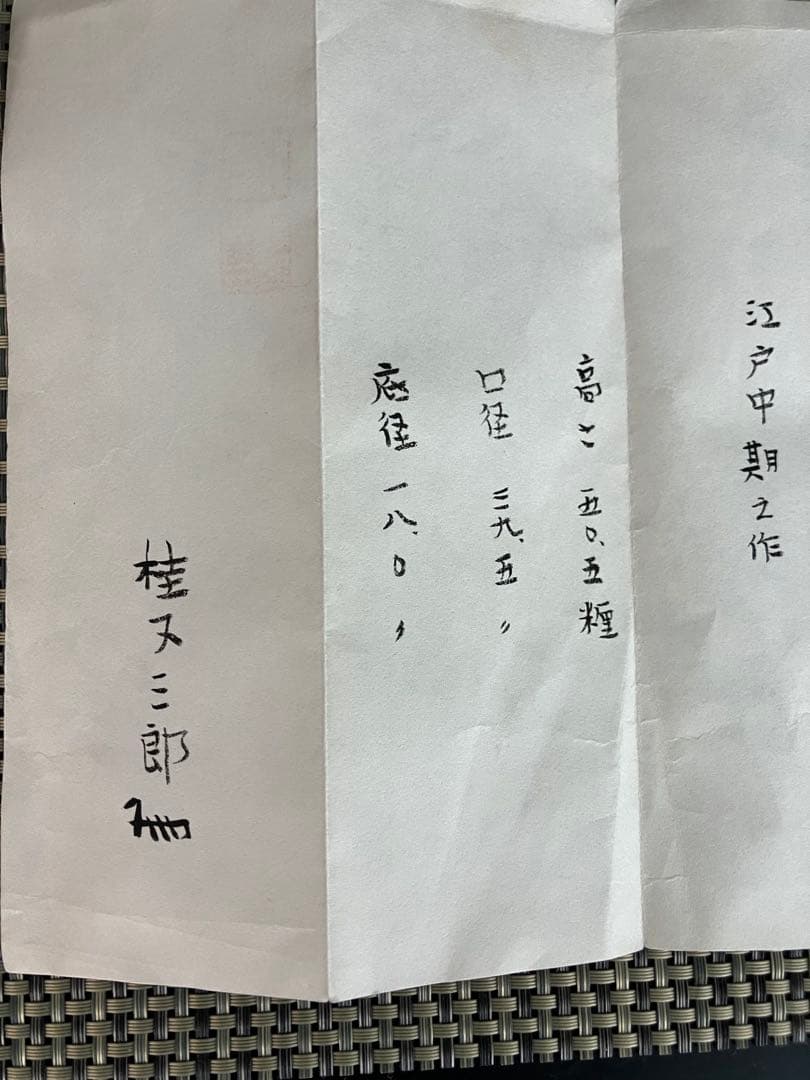 江戸中期之作
高さ 五〇、五糎
口径 三九、五〃
底径 一八、〇〃
桂又三郎